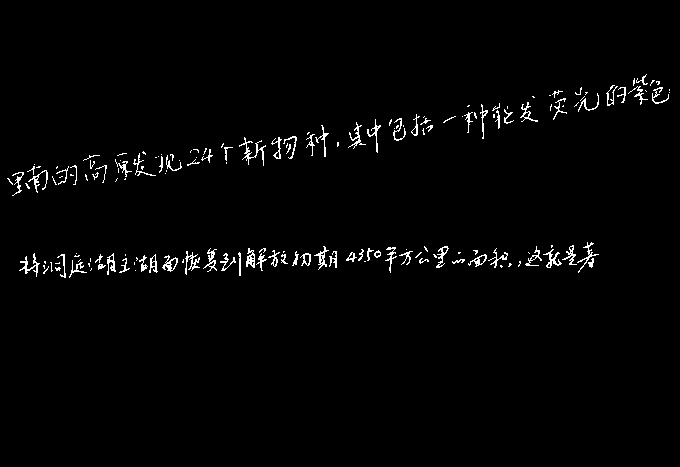 里南的高原发现24个新物种,其中包括一种能发荧光的紫色
将洞庭湖主湖面恢复到解放初期4350平方公里的面积,这就是著